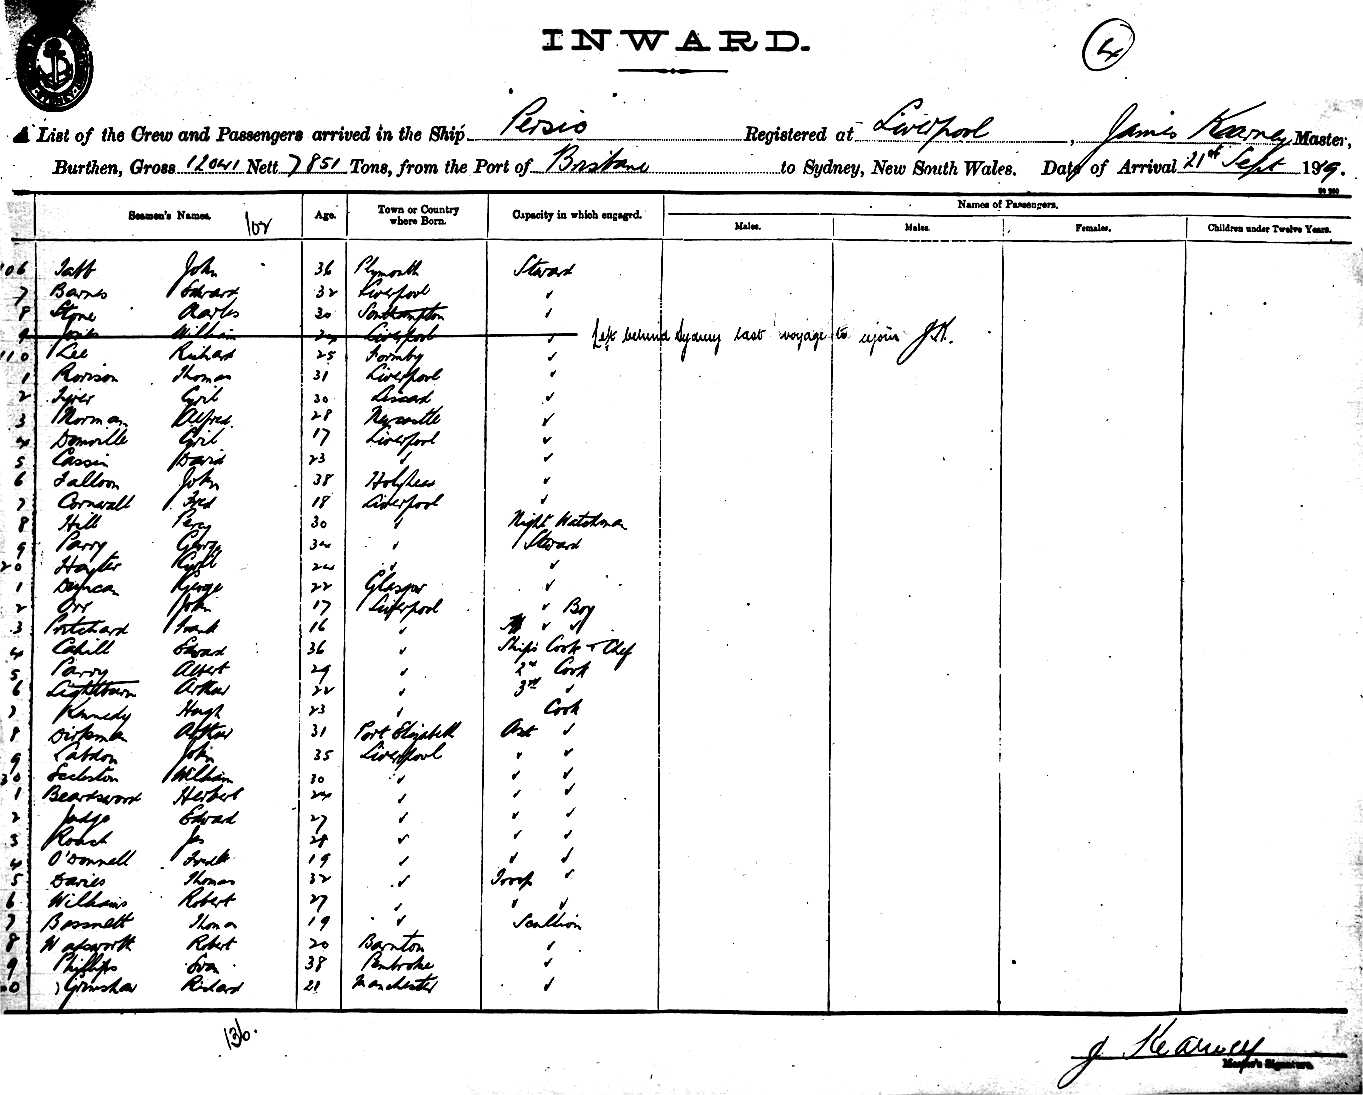 INWARD.
4
A List of the Crew and Passengers arrived in the Ship Persic Registered at Liverpool, James Kearney Master,
Burthen, Gross 12041 Nett 7851 Tons, from the Port of Brisbane to Sydney, New South Wales. Date of Arrival 21st Sept 1919.
Seamen's Names. Age. Town or Country where Born. Capacity in which engaged. Names of Passengers.
102 Males. Males. Females. Children under Twelve Years.
106 John 36 Plymouth Steward
7 Barnes Edward 32 Liverpool "
8 Stone Charles 30 Southampton "
9 William 24 Liverpool " Left behind Sydney last voyage to rejoin J.K.
110 Lee Richard 25 Formby "
1 Rowson Thomas 31 Liverpool "
2 Cyril 30 Liscard "
3 Norman Alfred 28 Newcastle "
4 Domville Cyril 17 Liverpool "
5 Cassin David 23 " "
6 Falloon John 38 Holyhead "
7 Cornwall Fred 18 Liverpool "
8 Hill Percy 30 " Night Watchman
9 Parry George 34 " Steward
20 Hayter Cyril 24 " "
1 Duncan George 22 Glasgow "
2 Orr John 17 Liverpool " Boy
3 Pritchard Frank 16 " " "
4 Cahill Edward 36 " Ships Cook & Chef
5 Parry Albert 29 " 2nd Cook
6 Lightbown Arthur 22 " 3rd "
7 Kennedy Hugh 23 " Cook
8 Dirkman Arthur 31 Port Elizabeth Asst "
9 Labdon John 35 Liverpool " "
30 Eccleston William 30 " " "
1 Beardsword Herbert 24 " " "
2 Judge Edward 27 " " "
3 Roach Jas " " "
4 O'Donnell Fredk 19 " " "
5 Davies Thomas 32 " Troop "
6 Williams Robert 27 " " "
7 Bassnett Thomas 19 " Scullion
8 Wadsworth Robert 20 Barnton "
9 Phillips Evan 38 Pembroke "
40 Grimshaw Richard 21 Manchester "
136.
J Kearney
Master's Signature.